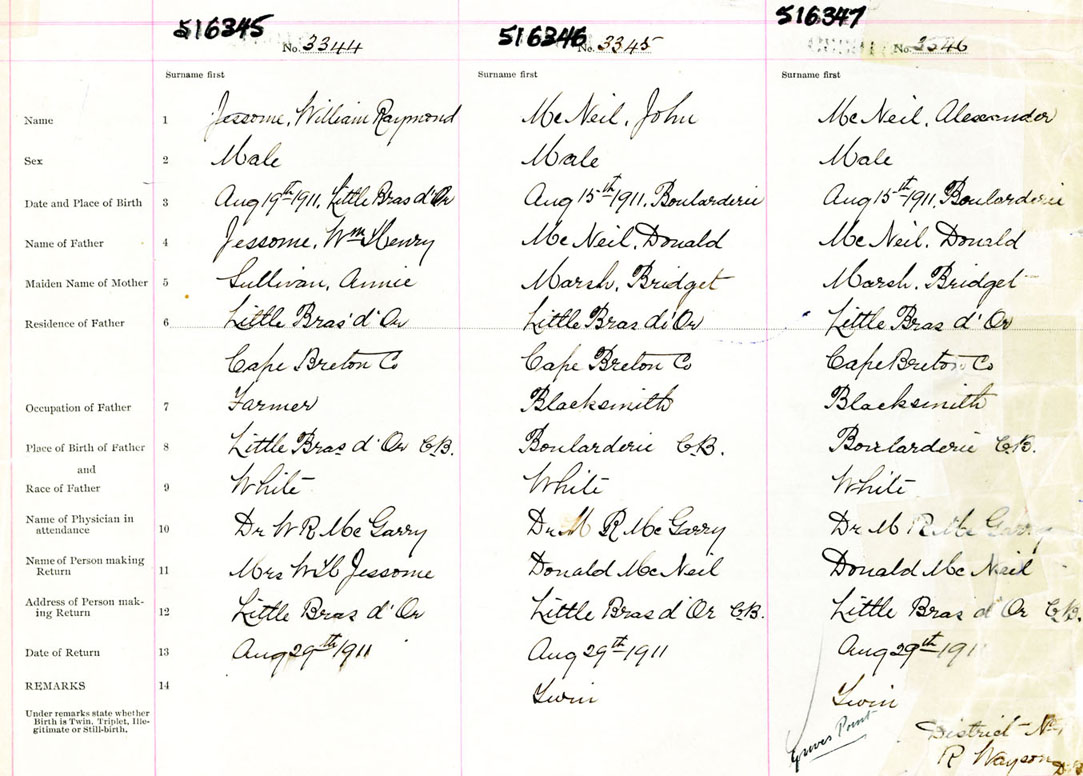 516345 516346 516347
No. 3344 No. 3345 No. 3346
Surname first Surname first Surname first
Name 1 Jessome, William Raymond McNeil, John McNeil, Alexander
Sex 2 Male Male Male
Date and Place of Birth 3 Aug 19th 1911, Little Bras d'Or Aug 15th 1911, Boularderie Aug 15th 1911, Boularderie
Name of Father 4 Jessome, Wm Henry McNeil, Donald McNeil, Donald
Maiden Name of Mother 5 Sullivan, Annie Marsh, Bridget Marsh, Bridget
Residence of Father 6 Little Bras d'Or Little Bras d'Or Little Bras d'Or
Cape Breton Co Cape Breton Co Cape Breton Co
Occupation of Father 7 Farmer Blacksmith Blacksmith
Place of Birth of Father 8 Little Bras d'Or C.B. Boularderie C.B. Boularderie C.B.
and
Race of Father 9 White White White
Name of Physician in
attendance 10 Dr W R McGarry Dr M R McGarry Dr M R McGarry
Name of Person making
Return 11 Mrs W H Jessome Donald McNeil Donald McNeil
Address of Person mak-
ing Return 12 Little Bras d'Or Little Bras d'Or C.B. Little Bras d'Or C.B.
Date of Return 13 Aug 29th 1911 Aug 29th 1911 Aug 29th 191
REMARKS 14 Twin Twin
Under remarks state whether
Birth is Twin, Triplet, Ille-
gitimate or Still-birth.
Point
District No
R